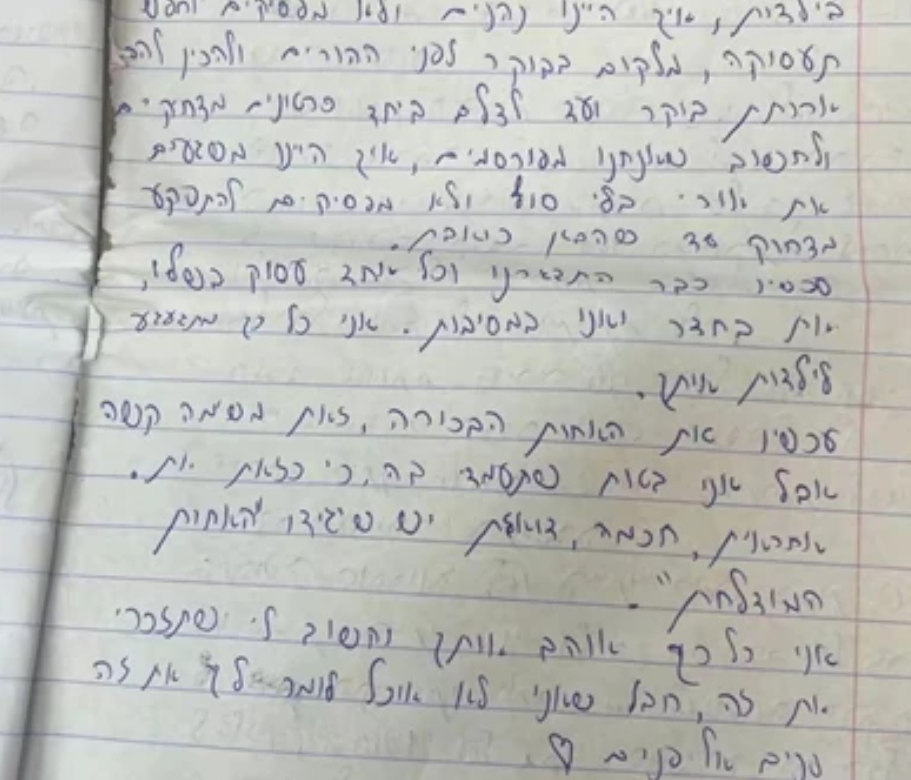 בילדות, איך היינו נהנים ולא מפסיקים לחפש
תעסוקה, מלקום בבוקר לפני ההורים ולהכין להם
ארוחת בוקר ועד לצלם ביחד סרטונים מצחיקים
ולחשוב שאנחנו מפורסמים, איך היינו משגעים
את אורי בלי סוף ולא מפסיקים להתפקע
מצחוק עד שהבטן כואבת.
עכשיו כבר התבגרנו וכל אחד עסוק בשלו,
את בחדר ואני במסיבות. אני כל כך מתגעגע
לילדות איתך.
עכשיו את האחות הבכורה, זאת משימה קשה
אבל אני בטוח שתעמדי בה, כי כזאת את.
אחראית, חכמה, דואגת יש שיגידו "האחות
המוצלחת".
אני כל כך אוהב אותך וחשוב לי שתזכרי
את זה, חבל שאני לא אוכל לומר לך את זה
פנים אל פנים ♡.